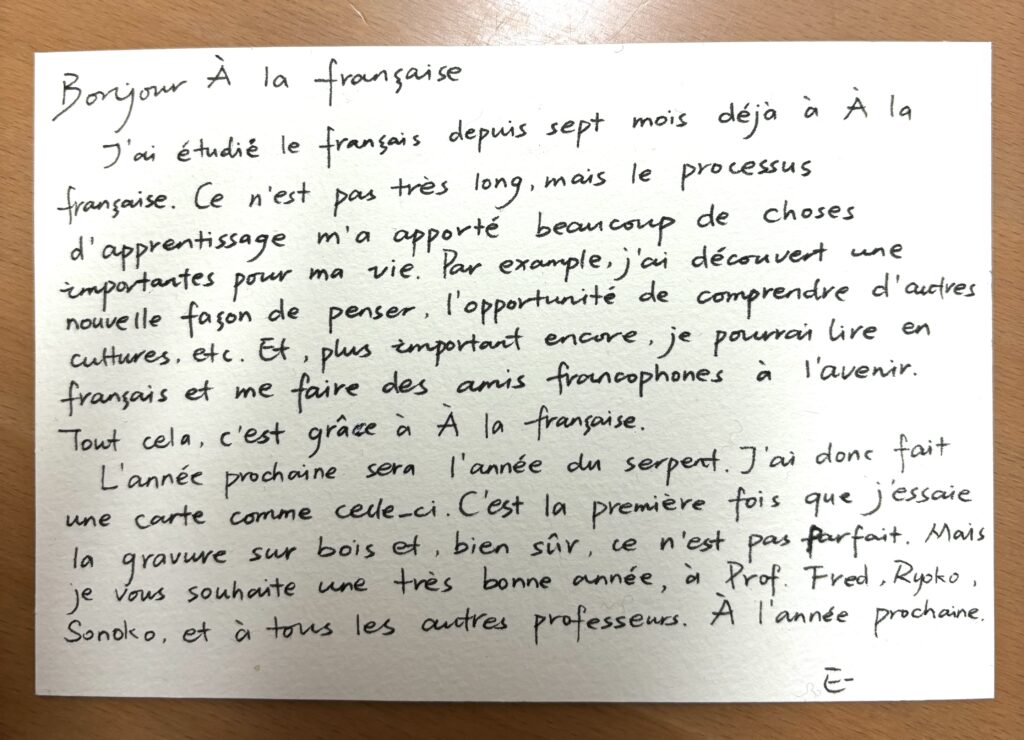 Bonjour À la française
J'ai étudié le français depuis sept mois déjà à À la
française. Ce n'est pas très long, mais le processus
d'apprentissage m'a apporté beaucoup de choses
importantes pour ma vie. Par example, j'ai découvert une
nouvelle façon de penser, l'opportunité de comprendre d'autres
cultures, etc. Et, plus important encore, je pourrai lire en
français et me faire des amis francophones à l'avenir.
Tout cela, c'est grâce à À la française.
L'année prochaine sera l'année du serpent. J'ai donc fait
une carte comme celle-ci. C'est la première fois que j'essaie
la gravure sur bois et, bien sûr, ce n'est pas parfait. Mais
je vous souhaite une très bonne année, à Prof. Fred, Ryoko,
Sonoko, et à tous les autres professeurs. À l'année prochaine.
E-